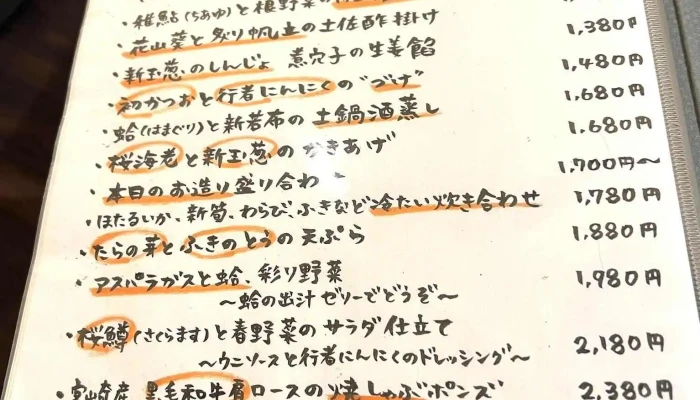 ・稚鮎(ちあゆ)と根野菜の
・花山葵と炙り帆立の土佐酢掛け 1,380円
・新玉葱のしんじょ 煮穴子の生姜餡 1,480円
・初かつおと行者にんにくの"づけ" 1,680円
・蛤(はまぐり)と新若布の土鍋酒蒸し 1,680円
・桜海老と新玉葱のかきあげ
・本日のお造り盛り合わ 1,700円〜
・ほたるいか、新筍、わらび、ふきなど冷たい炊き合わせ 1,780円
・たらの芽とふきのとうの天ぷら 1,880円
・アスパラガスと蛤、彩り野菜 1,980円
〜蛤の出汁ゼリーでどうぞ〜
・桜鱒(さくらます)と春野菜のサラダ仕立て
〜ウニソースと行者にんにくのドレッシング〜 2,180円
・宮崎産 黒毛和牛肩ロースの焼しゃぶポンズ 2,380円